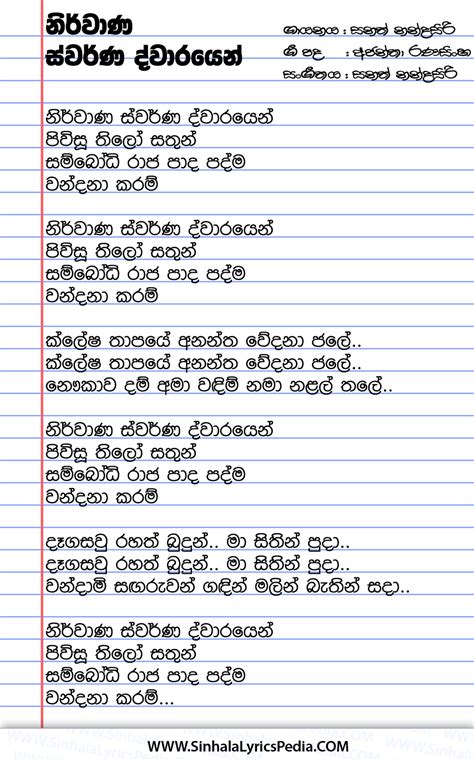 නිර්වාණ
ස්වර්ණ ද්වාරයෙන්
ගායනය : සනත් නන්දසිරි
ගී පද : අජන්තා රණසිංහ
සංගීතය : සනත් නන්දසිරි
නිර්වාණ ස්වර්ණ ද්වාරයෙන්
පිවිසූ තිලෝ සතුන්
සම්බෝධි රාජ පාද පද්ම
වන්දනා කරම්
නිර්වාණ ස්වර්ණ ද්වාරයෙන්
පිවිසූ තිලෝ සතුන්
සම්බෝධි රාජ පාද පද්ම
වන්දනා කරම්
ක්ලේෂ තාපයේ අනන්ත වේදනා ජලේ..
ක්ලේෂ තාපයේ අනන්ත වේදනා ජලේ..
නෞකාව දම් අමා වඳිම් නමා නළල් තලේ..
නිර්වාණ ස්වර්ණ ද්වාරයෙන්
පිවිසූ තිලෝ සතුන්
සම්බෝධි රාජ පාද පද්ම
වන්දනා කරම්
දෑගසවු රහත් බුදුන්.. මා සිතින් පුදා..
දෑගසවු රහත් බුදුන්.. මා සිතින් පුදා..
වන්දාමි සඟරුවන් ගඳින් මලින් බැතින් සදා..
නිර්වාණ ස්වර්ණ ද්වාරයෙන්
පිවිසූ තිලෝ සතුන්
සම්බෝධි රාජ පාද පද්ම
වන්දනා කරම්...
WWW.SinhalaLyricsPedia.COM